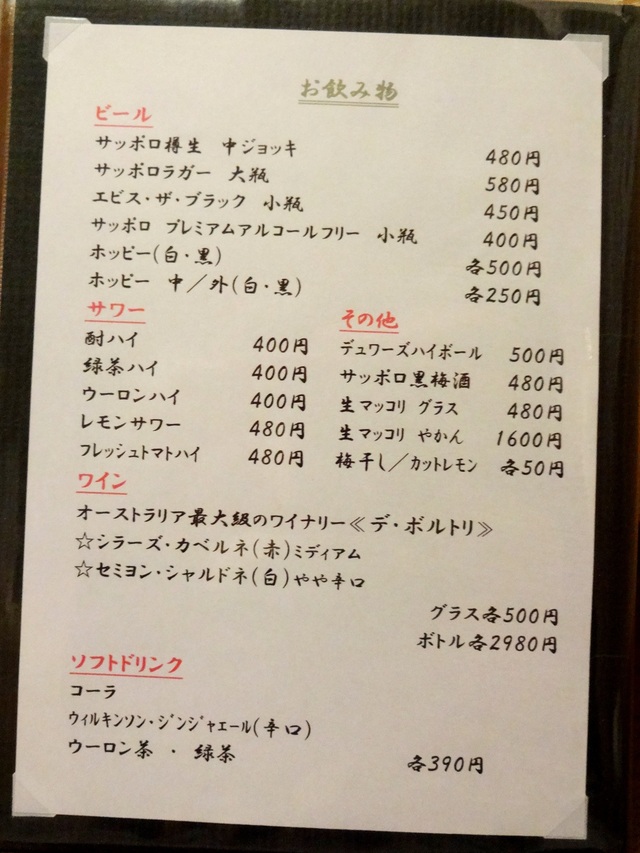 お飲み物
ビール
サッポロ樽生 中ジョッキ 480円
サッポロラガー 大瓶 580円
エビス・ザ・ブラック 小瓶 450円
サッポロ プレミアムアルコールフリー 小瓶 400円
ホッピー(白・黒) 各500円
ホッピー 中／外(白・黒) 各250円
サワー
酎ハイ 400円
緑茶ハイ 400円
ウーロンハイ 400円
レモンサワー 480円
フレッシュトマトハイ 480円
その他
デュワーズハイボール 500円
サッポロ黒梅酒 480円
生マッコリ グラス 480円
生マッコリ やかん 1600円
梅干し／カットレモン 各50円
ワイン
オーストラリア最大級のワイナリー≪デ・ボルトリ≫
☆シラーズ・カベルネ(赤)ミディアム
☆セミヨン・シャルドネ(白)やや辛口
グラス各500円
ボトル各2980円
ソフトドリンク
コーラ
ウィルキンソン・ジンジャエール(辛口)
ウーロン茶 ・ 緑茶
各390円